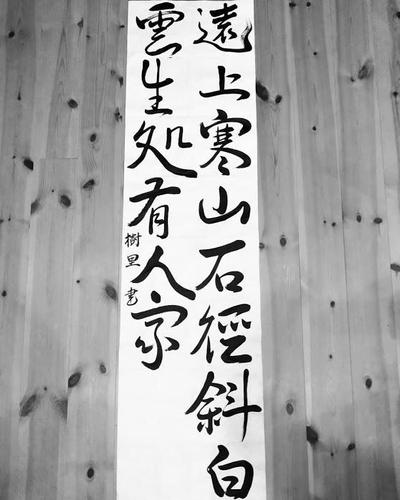 遠上寒山石徑斜白
雲生処有人家
樹里書